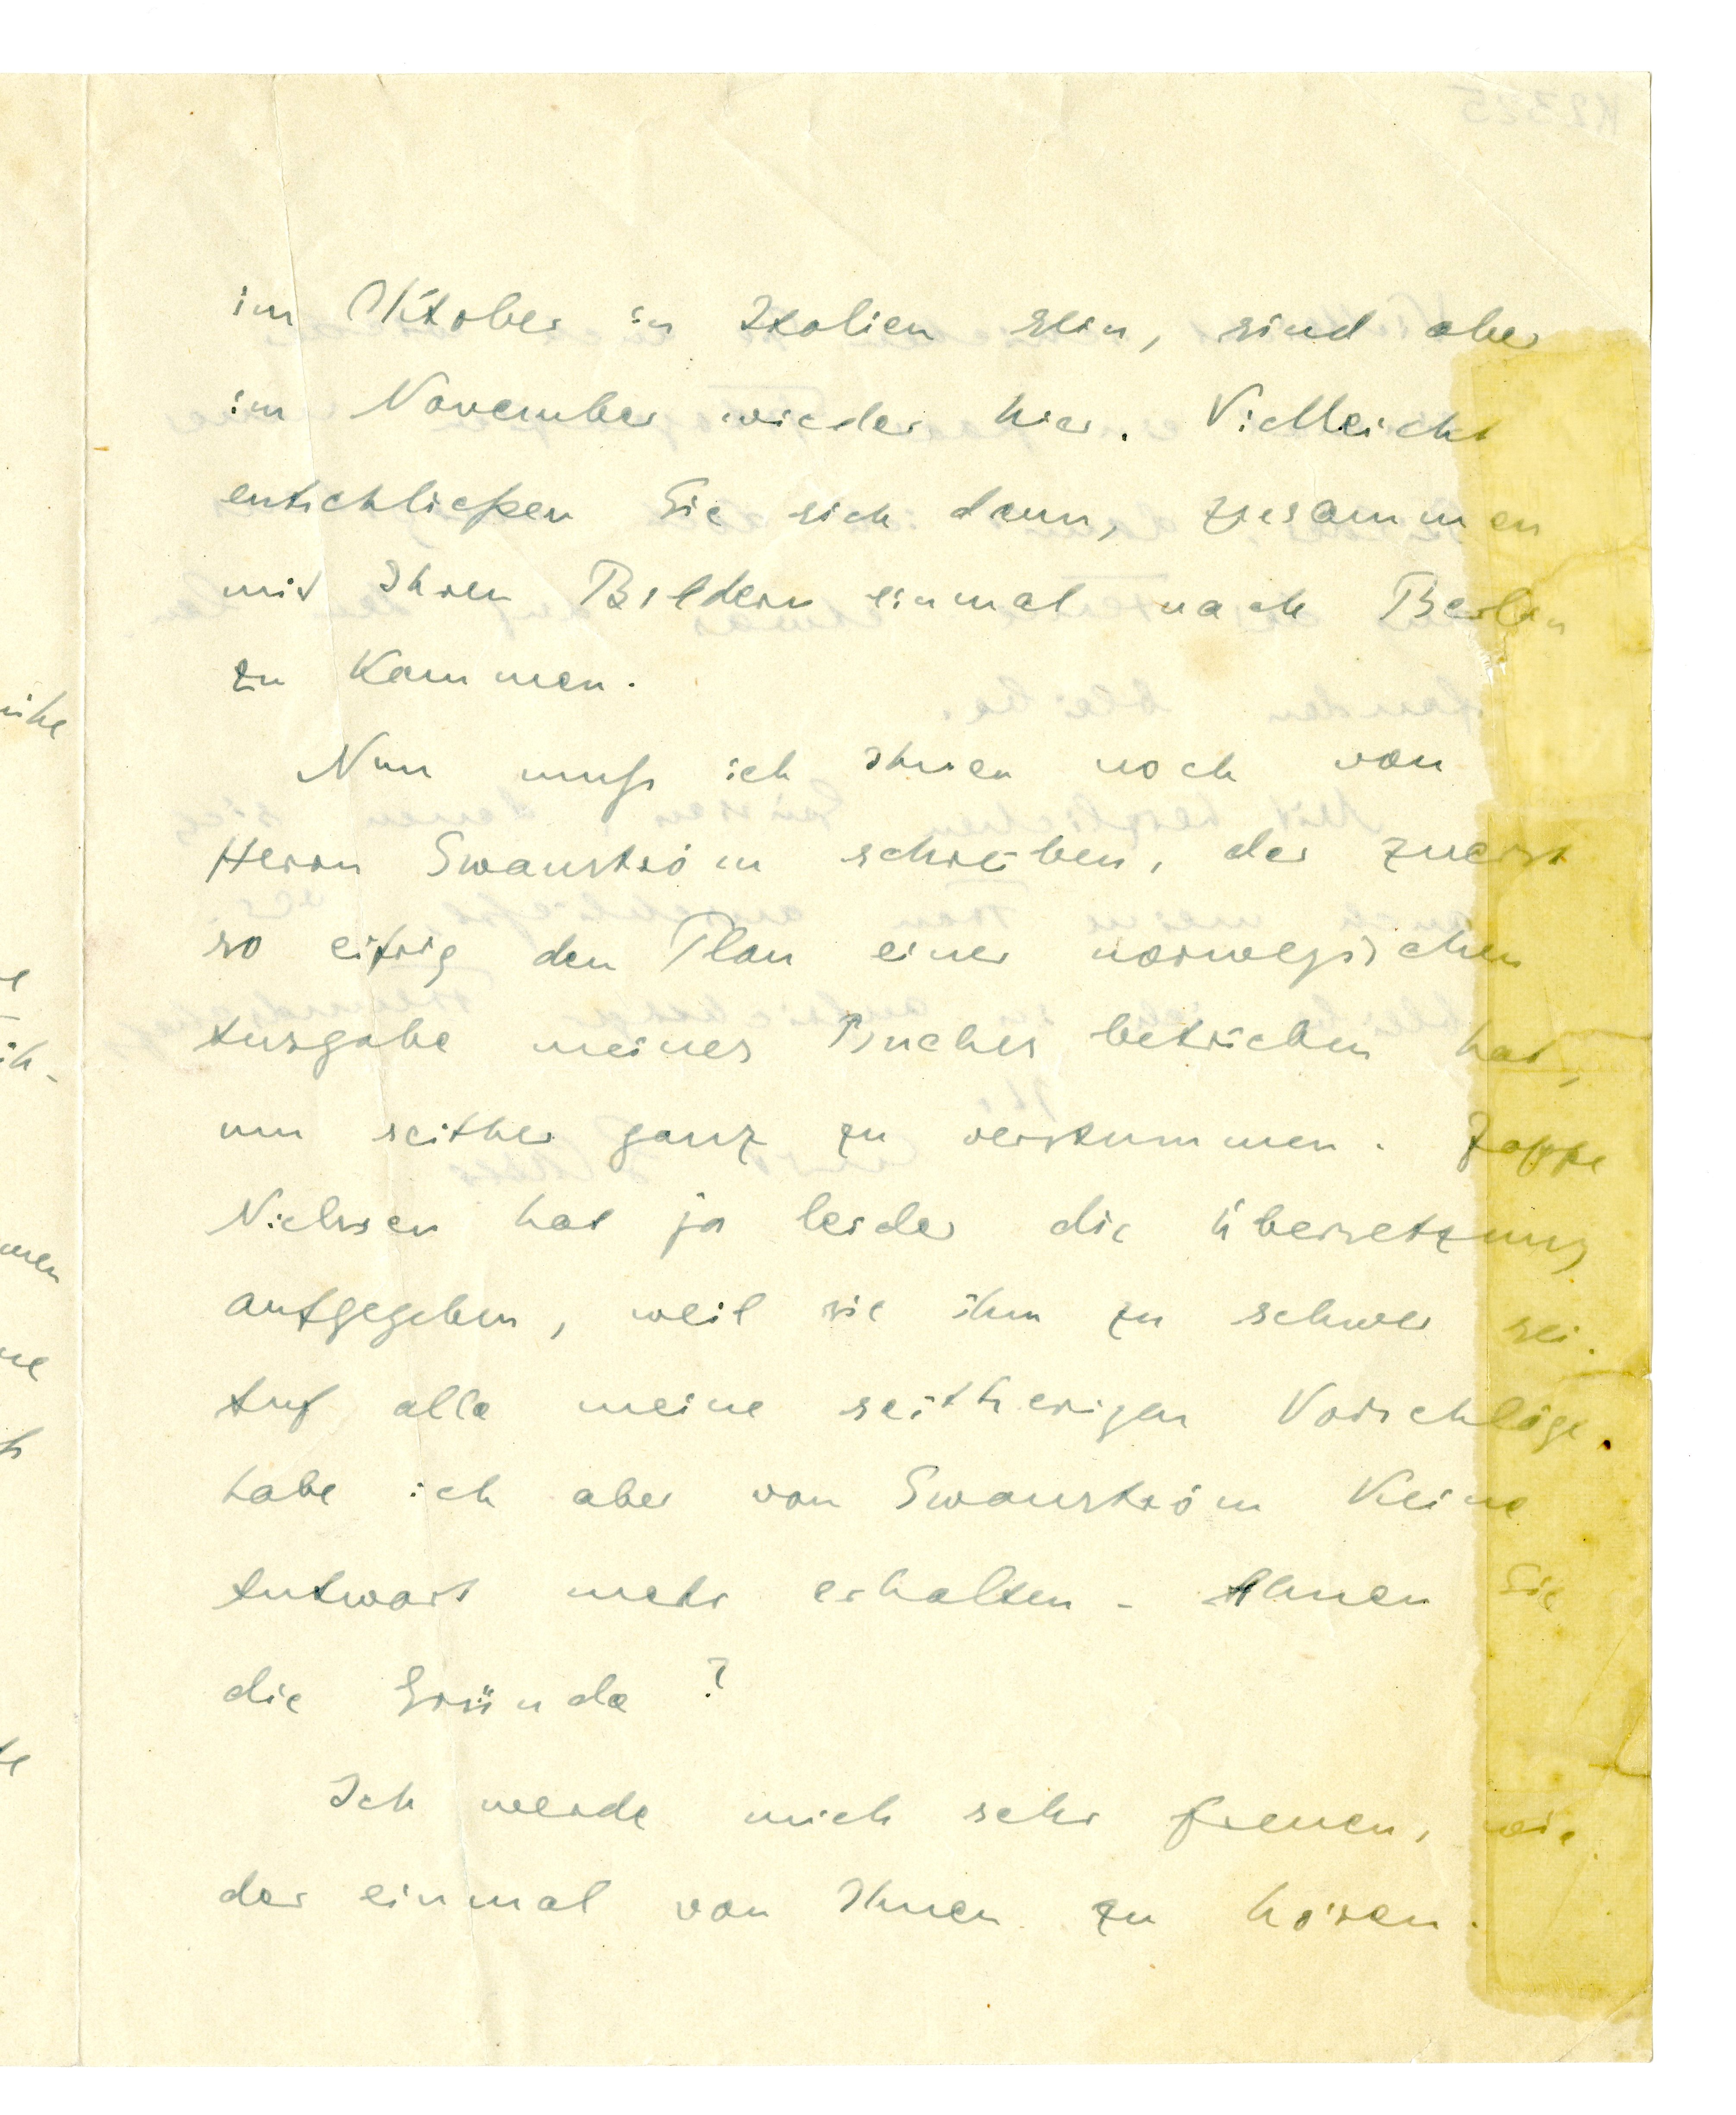 im Oktober in Italien sein, sind aber
im November wieder hier. Vielleicht
entschließen Sie sich dann, zusammen
mit Ihren Bildern einmal nach Berlin
zu kommen.
Nun muß ich Ihnen noch von
Herrn Swanström schreiben, der zuerst
so eifrig den Plan einer norwegischen
Ausgabe meines Buches betrieben hat,
um seither ganz zu verstummen. Jappe
Nielssen hat ja leider die Übersetzung
aufgegeben, weil sie ihm zu schwer sei.
Auf alle meine seitherigen Vorschläge
habe ich aber von Swanström keine
Antwort mehr erhalten - Ahnen Sie
die Gründe?
Ich werde mich sehr freuen, wie
der einmal von Ihnen zu hören.